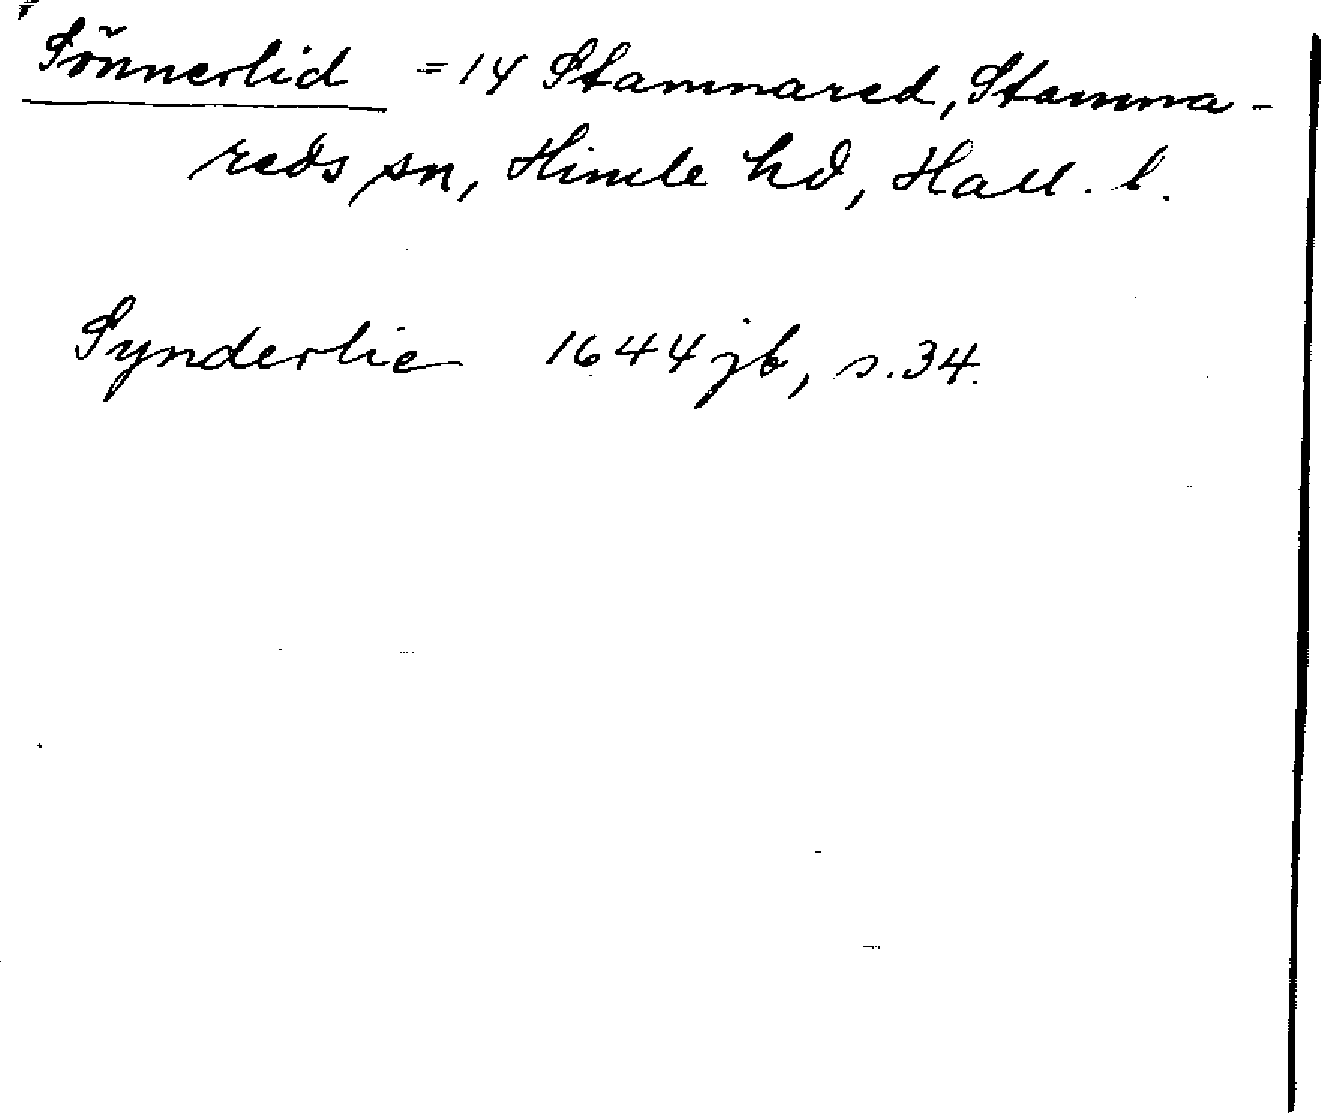 Sönnerlid = 14 Stamnared, Stamna-
reds sn, Himle hd, Hall. l.
Synderlie 1644 jb, s. 34.